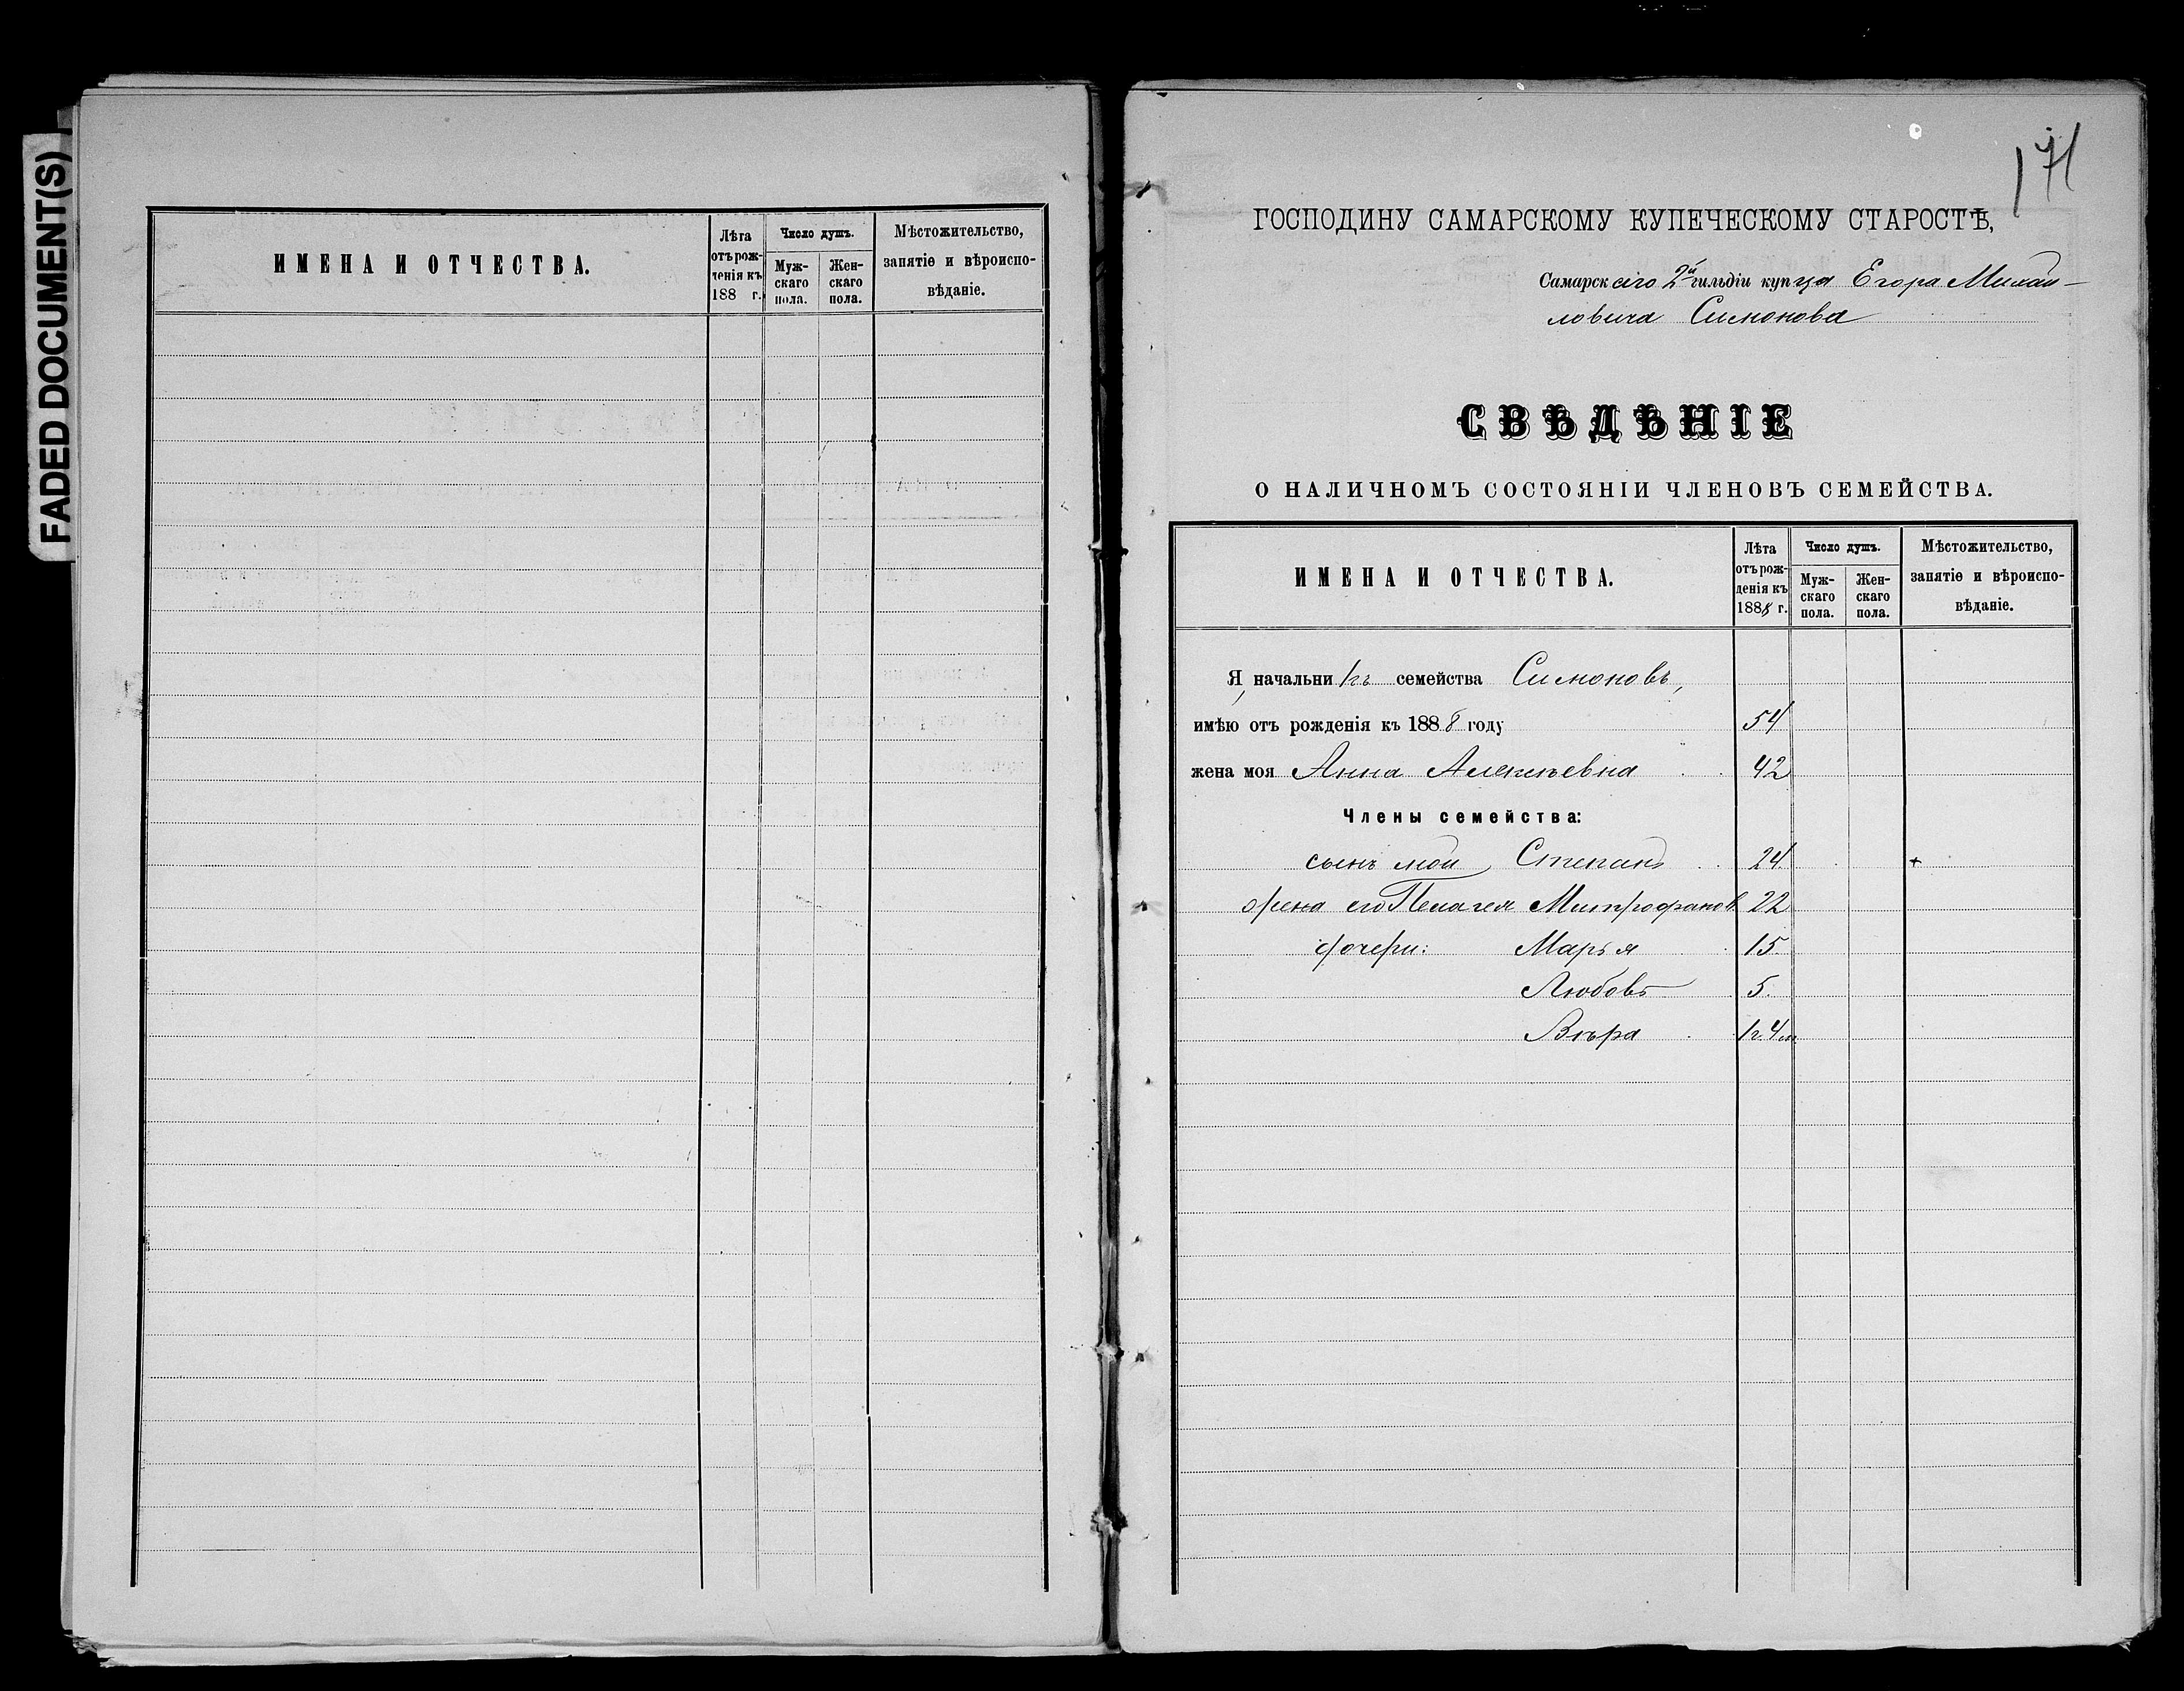 FADED DOCUMENT(S)
ИМЕНА И ОТЧЕСТВА.
Лѣта отъ рожденія къ 188 г.
Число душъ.
Мужскаго пола.
Женскаго пола.
Мѣстожительство, занятіе и вѣроисповѣданіе.
171
ГОСПОДИНУ САМАРСКОМУ КУПЕЧЕСКОМУ СТАРОСТѢ,
Самарскаго 2й гильдіи купца Егора Михай-
ловича Симонова
СВѢДѢНІЕ
О НАЛИЧНОМЪ СОСТОЯНІИ ЧЛЕНОВЪ СЕМЕЙСТВА.
ИМЕНА И ОТЧЕСТВА.
Лѣта отъ рожденія къ 1888 г.
Число душъ.
Мужскаго пола.
Женскаго пола.
Мѣстожительство, занятіе и вѣроисповѣданіе.
Я, начальникъ семейства Симоновъ,
имѣю отъ рожденія къ 1888 году 54
жена моя Анна Алексѣевна 42
Члены семейства:
сынъ мой Степанъ 24 +
жена его Пелагея Митрофанов. 22
дочери: Марья 15
Любовь 5.
Вѣра 1 г. 4 м.